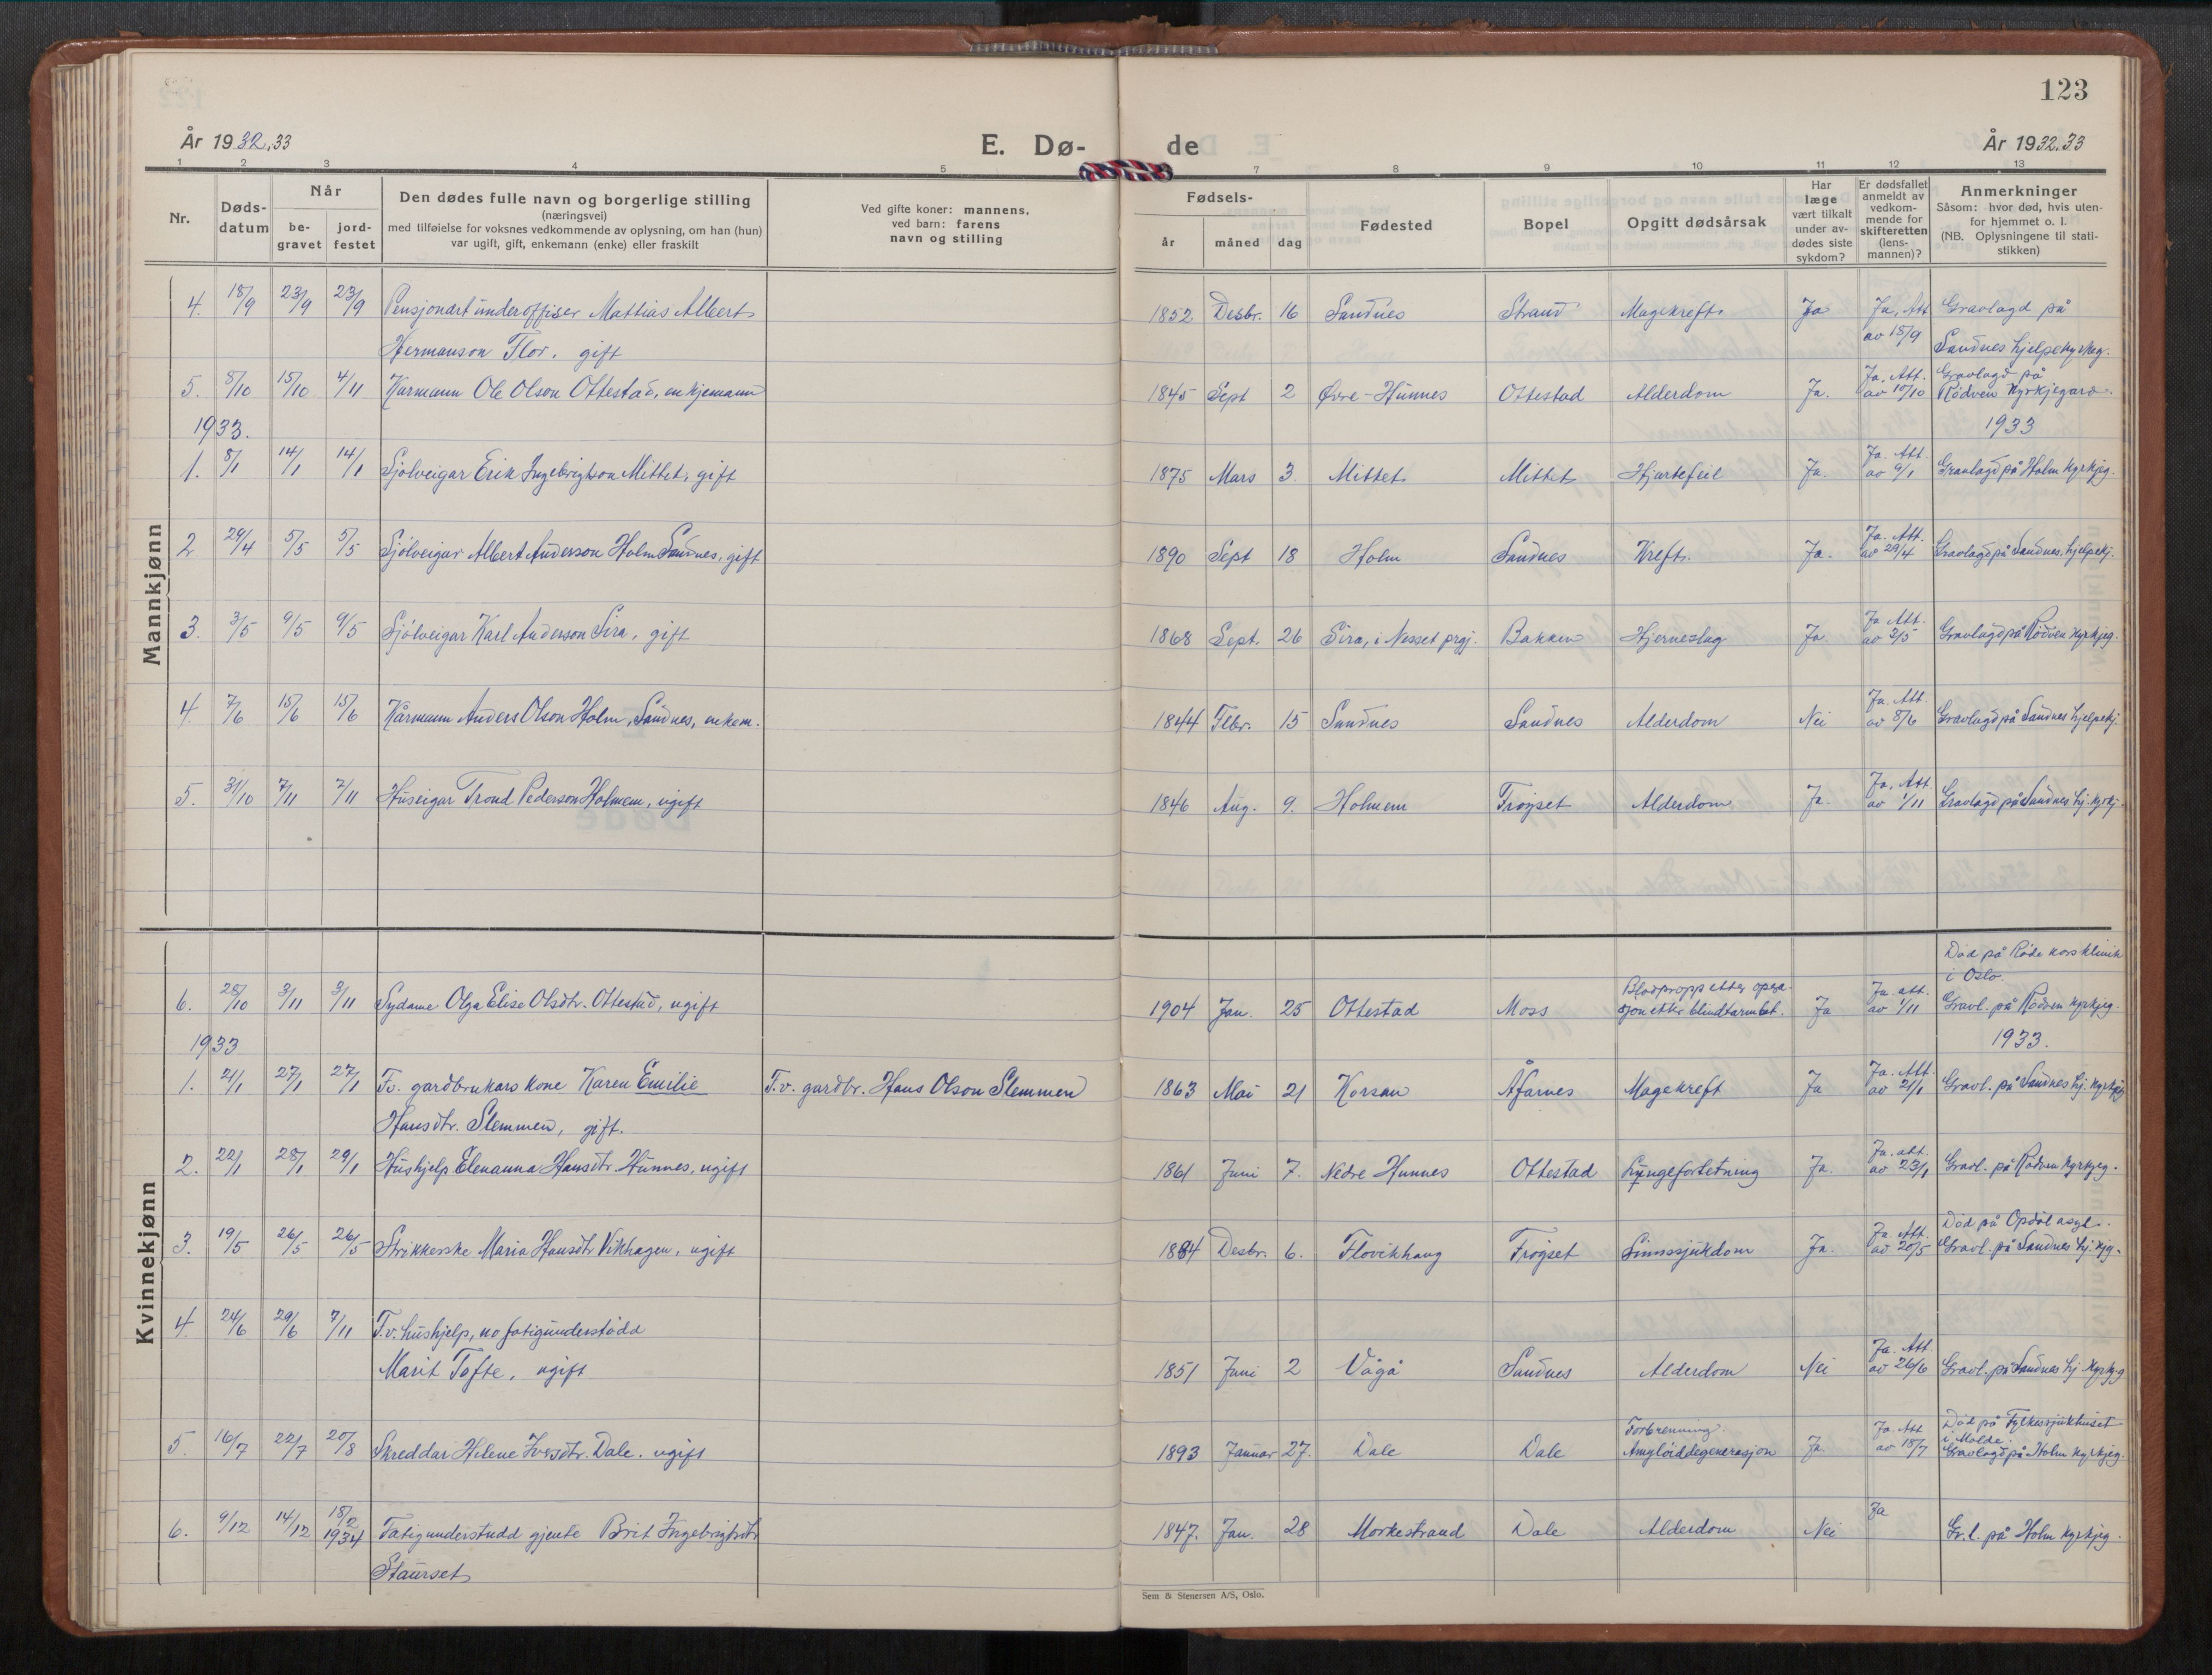 123
År 1932.33
E. Dø-
de
År 1932.33
1 2 3 4 5 7 8 9 10 11 12 13
Nr.
Døds-
datum
Når
be-
gravet
jord-
festet
Den dødes fulle navn og borgerlige stilling
(næringsvei)
med tilføielse for voksnes vedkommende av oplysning, om han (hun)
var ugift, gift, enkemann (enke) eller fraskilt
Ved gifte koner: mannens,
ved barn: farens
navn og stilling
Fødsels-
år
måned
dag
Fødested
Bopel
Opgitt dødsårsak
Har
læge
vært tilkalt
under av-
dødes siste
sykdom?
Er dødsfallet
anmeldt av
vedkom-
mende for
skifteretten
(lens-
mannen)?
Anmerkninger
Såsom: hvor død, hvis uten-
for hjemmet o. l.
(NB. Oplysningene til stati-
stikken)
Mannkjønn
4. 18/9 23/9 23/9 Pensjonert underoffiser Mattias Albert 1852 Desbr. 16 Sandnes Strand Magekreft Ja Ja, Att Gravlagd på
Hermanson Flor, gift av 18/9 Sandnes hjelpekyrkjeg.
5. 8/10 15/10 4/11 Kårmann Ole Olson Ottestad, enkjemann 1845 Sept 2 Øvre-Hunnes Ottestad Alderdom Ja. Ja, Att. av 10/10 Gravlagd på
Rødven kyrkjegard.
1933. 1933
1. 8/1 14/1 14/1 Sjølveigar Erik Ingebrigtson Mittet, gift 1875 Mars 3. Mittet Mittet Hjartefeil Ja. Ja. Att. av 9/1 Gravlagd på Holm kyrkjeg.
2 29/4 5/5 5/5 Sjølveigar Albert Anderson Holm Sandnes, gift 1890 Sept 18 Holm Sandnes Kreft. Ja. Ja. Att. av 29/4 Gravlagd på Sandnes hjelpekj.
3. 3/5 9/5 9/5 Sjølveigar Karl Anderson Sira, gift 1868 Sept. 26 Sira, i Nesset prgj. Bakken Hjerneslag Ja. Ja Att. av 3/5 Gravlagd på Rødven kyrkjeg.
4. 7/6 15/6 15/6 Kårmann Anders Olson Holm, Sandnes, enkem. 1844 Febr. 15 Sandnes Sandnes Alderdom Nei Ja. Att. av 8/6 Gravlagd på Sandnes hjelpekj.
5. 31/10 7/11 7/11 Huseigar Trond Pederson Holmem, ugift 1846 Aug. 9. Holmem Trøjset Alderdom Ja Ja, Att av 1/11 Gravlagd på Sandnes hj. kyrkj.
Kvinnekjønn
Død på Røde kors klinik
i Oslo.
6. 28/10 3/11 3/11 Sydame Olga Elise Olsdtr. Ottestad, ugift 1904 Jan. 25 Ottestad Moss Blodpropp etter opera-
sjon etter blindtarmbet. Ja Ja att. av 1/11 Gravl. på Rødven kyrkjeg.
1933 1933.
1. 21/1 27/1 27/1 Fv. gardbrukars kone Karen Emilie T.v. gardbr. Hans Olson Slemmen 1863 Mai 21 Korsan Åfarnes Magekreft Ja Ja. Att. av 21/1 Gravl. på Sandnes hj. kyrkjeg
Hansdtr. Slemmen, gift.
2. 22/1 28/1 29/1 Hushjelp Elenanna Hansdtr Hunnes, ugift 1861 Juni 7. Nedre Hunnes Ottestad Lungefortetning Ja. Ja. att. av 23/1 Gravl. på Rødven kyrkjeg.
3. 19/5 26/5 26/5 Strikkerske Maria Hansdtr Vikhagen, ugift 1884 Desbr. 6. Flovikhaug Trøjset Sinnssjukdom Ja. Ja Att. av 20/5 Død på Opdøl asyl.
Gravl. på Sandnes hj. kyg.
4. 24/6 29/6 7/11 T.v. hushjelp, no fatigunderstødd
Marit Tofte, ugift 1851 Juni 2 Vågå Sandnes Alderdom Nei Ja. Att. av 26/6 Gravl. på Sandnes hj kyrkjeg
5. 16/7 22/7 20/8 Skreddar Helene Iversdtr. Dale. ugift 1893 Januar 27. Dale Dale Forbrenning.
Amyloiddegenerasjon Ja. Ja. Att av 18/7 Død på Fylkessjukhuset
i Molde.
Gravlagd på Holm kyrkjeg.
6. 9/12 14/12 18/2 1934 Fatigunderstødd gjente Brit Ingebrigtsdtr 1847. Jan. 28 Morkestrand Dale Alderdom Nei Ja Gr.l. på Holm kyrkjeg.
Staurset
Sem & Stenersen A/S, Oslo.